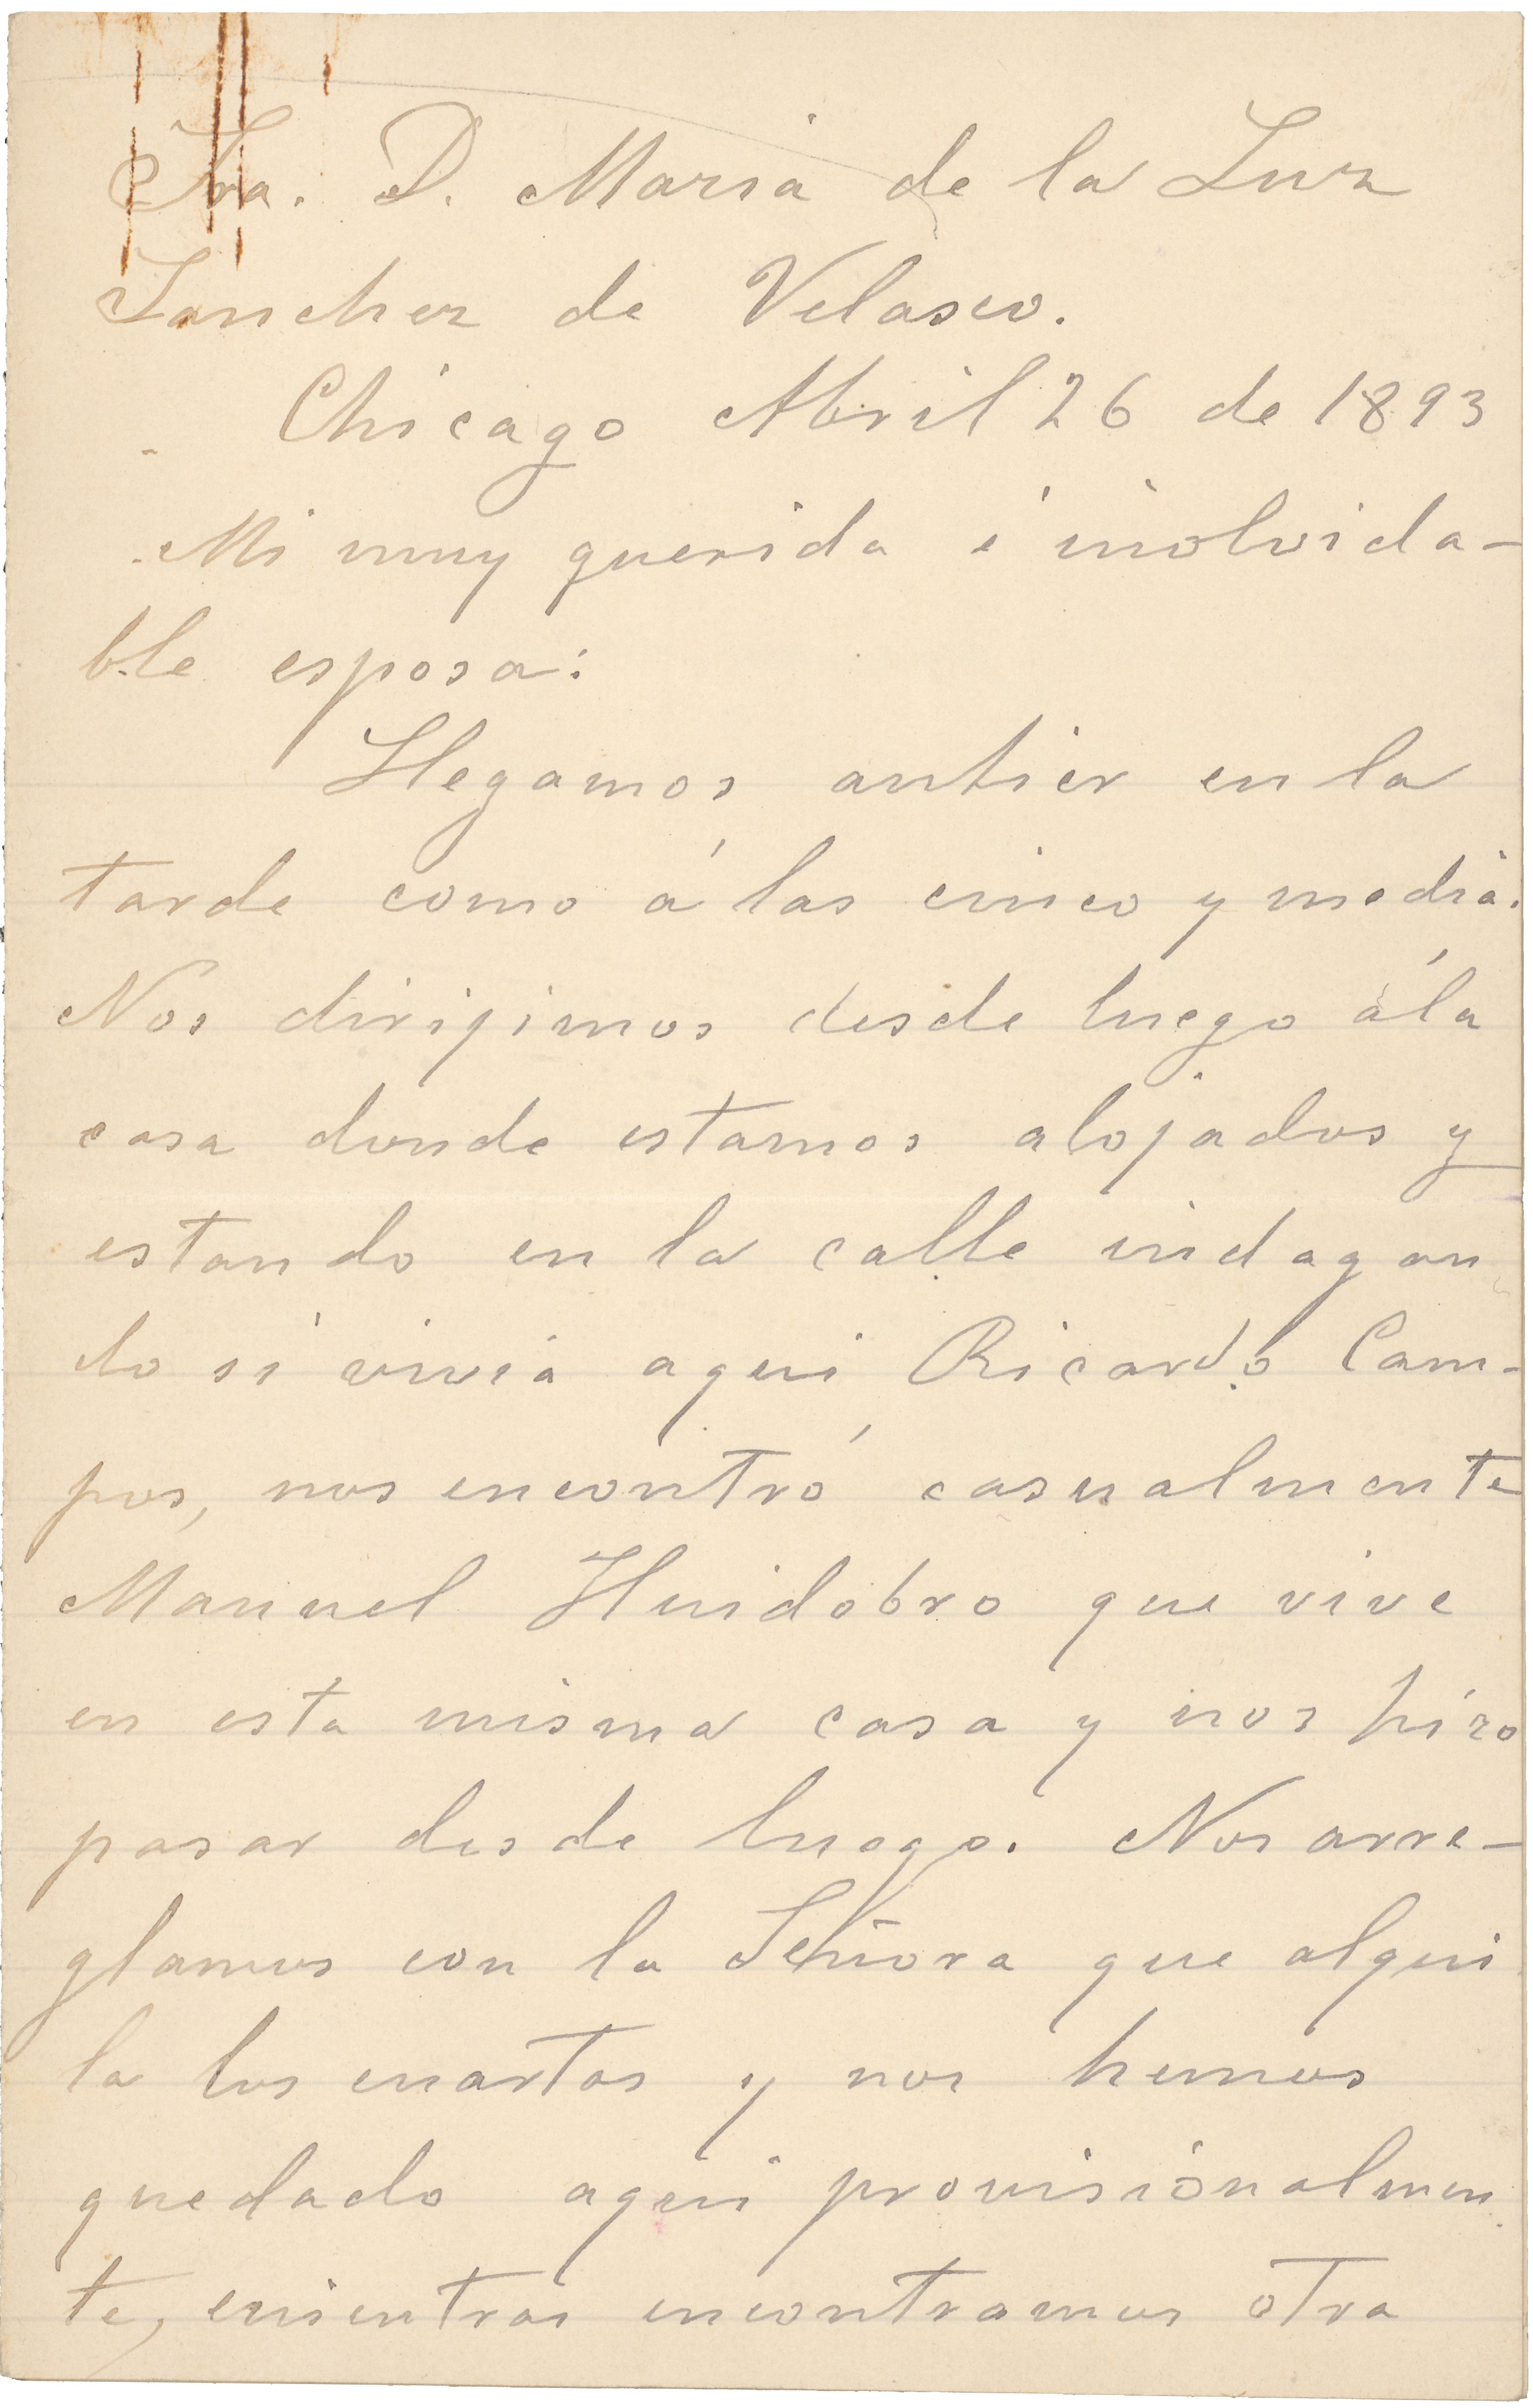 Sra. D. Maria de la Luz
Sanchez de Velasco.
Chicago Abril 26 de 1893
Mi muy querida é inolvida-
ble esposa:
Llegamos antier en la
tarde como á las cinco y media.
Nos dirigimos desde luego á la
casa donde estamos alojados y
estando en la calle indagan
do si vivia aqui Ricardo Cam-
pos, nos encontró casualmente
Manuel Huidobro que vive
en esta misma casa y nos hizo
pasar desde luego. Nos arre-
glamos con la Señora que alqui
la los cuartos y nos hemos
quedado aqui provisionalmen
te, mientras encontramos otra